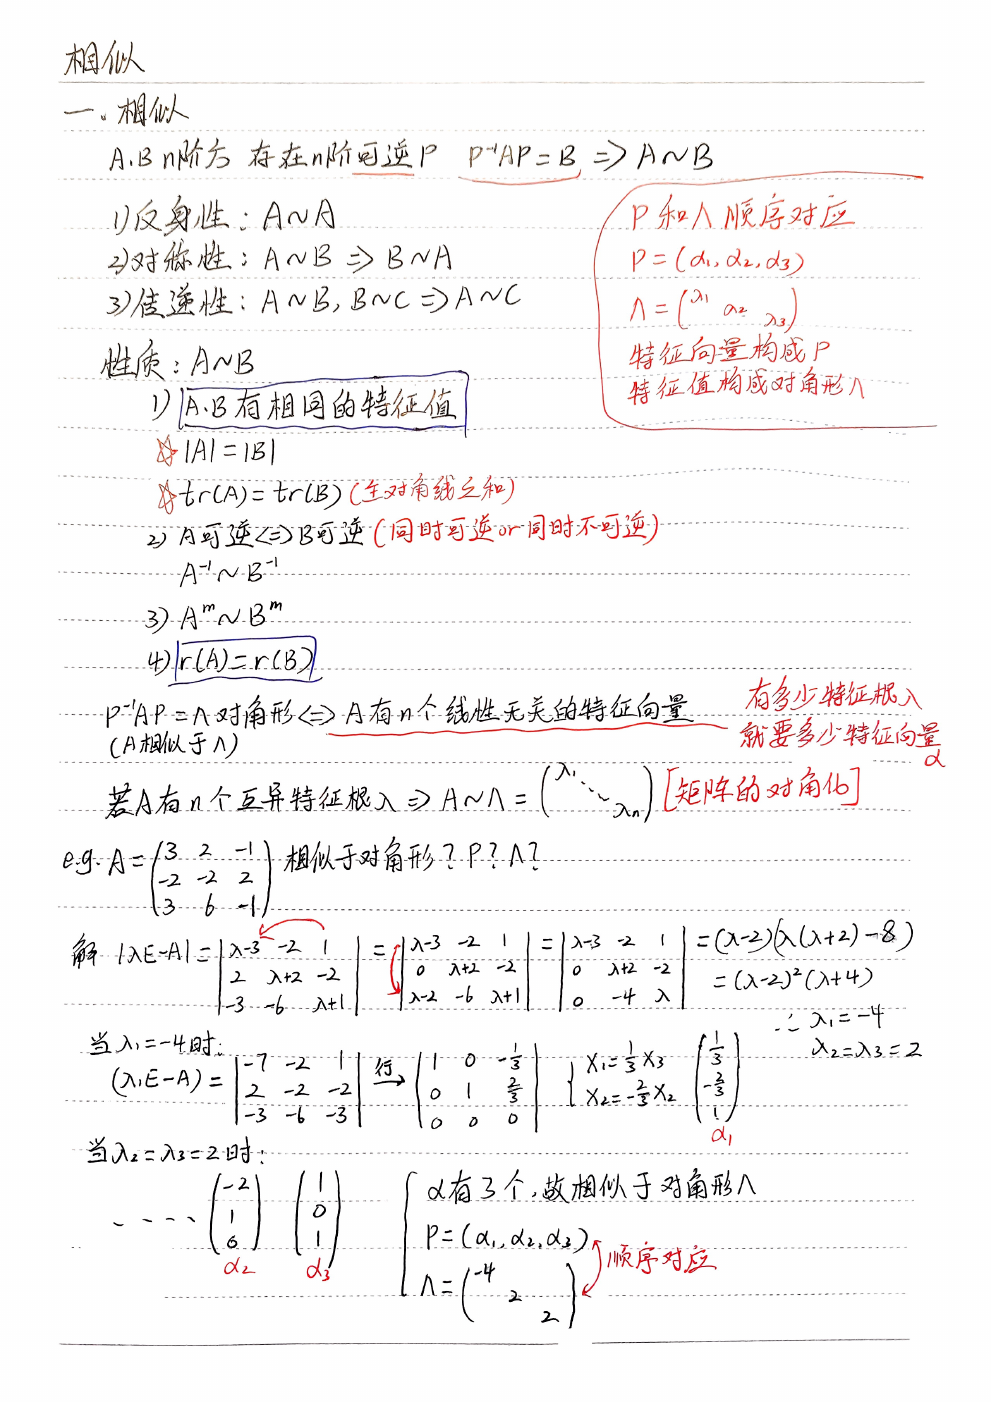 相似
一. 相似
A.B n阶方 存在n阶可逆P P⁻¹AP=B ⇒ A~B
1)反身性: A~A
2)对称性: A~B ⇒ B~A
3)传递性: A~B, B~C ⇒ A~C
P和Λ顺序对应
P=(α₁,α₂,α₃)
Λ=(λ₁ α₂ λ₃)
特征向量构成P
特征值构成对角形Λ
性质: A~B
1) A.B有相同的特征值
☆ |A|=|B|
☆ tr(A)=tr(B) (主对角线之和)
2) A可逆⇔B可逆 (同时可逆or同时不可逆)
A⁻¹~B⁻¹
3) Aᵐ~Bᵐ
4) r(A)=r(B)
P⁻¹AP=Λ对角形⇔A有n个线性无关的特征向量
(A相似于Λ)
有多少特征根λ
就要多少特征向量
α
若A有n个互异特征根λ ⇒ A~Λ=(λ₁ ⋱ λₙ) [矩阵的对角化]
e.g. A=(3 2 -1
-2 -2 2
3 6 -1) 相似于对角形? P? Λ?
解 |λE-A|=|λ-3 -2 1|=|λ-3 -2 1|=|λ-3 -2 1|=(λ-2)(λ(λ+2)-8)
|2 λ+2 -2| |0 λ+2 -2| |0 λ+2 -2| =(λ-2)²(λ+4)
|-3 -6 λ+1| |λ-2 -6 λ+1| |0 -4 λ|
∴ λ₁=-4
λ₂=λ₃=2
当λ₁=-4时:
(λ₁E-A)=|-7 -2 1| 行→ |1 0 -1/3| {X₁=1/3X₃ (1/3
|2 -2 -2| |0 1 2/3| X₂=-2/3X₂ -2/3
|-3 -6 -3| |0 0 0| 1)
α₁
当λ₂=λ₃=2时:
.... (-2 1 0) (1 0 1)
α₂ α₃
α有3个,故相似于对角形Λ
P=(α₁,α₂,α₃)
顺序对应
Λ=(-4 2 2)